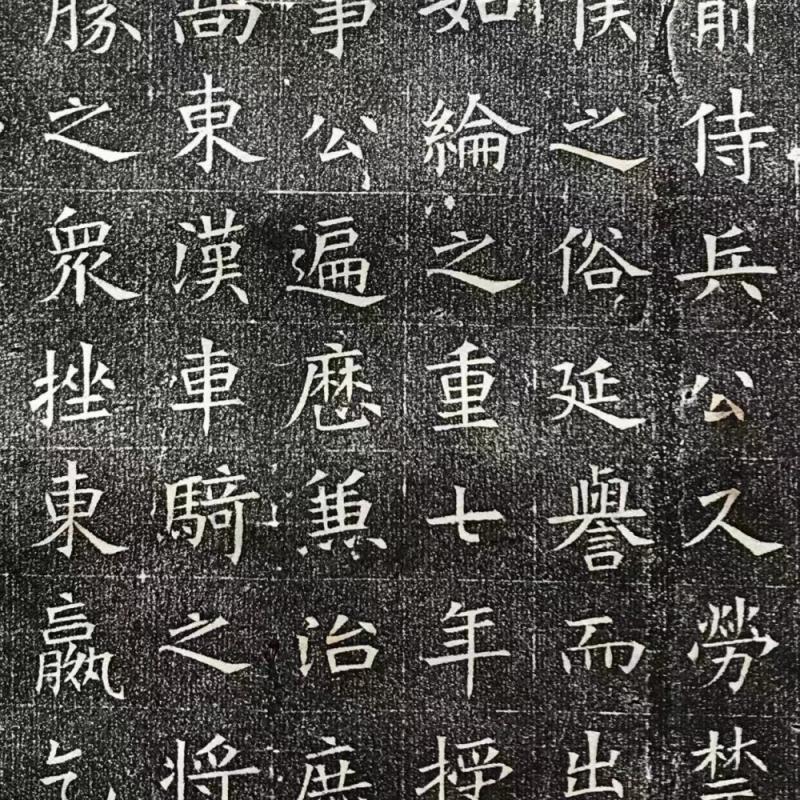 前侍兵公久勞禁
侯之俗延譽而出
如綸之重七年授
事公遍歷兼治庶
高東漢車騎之將
勝之眾挫東嬴乞